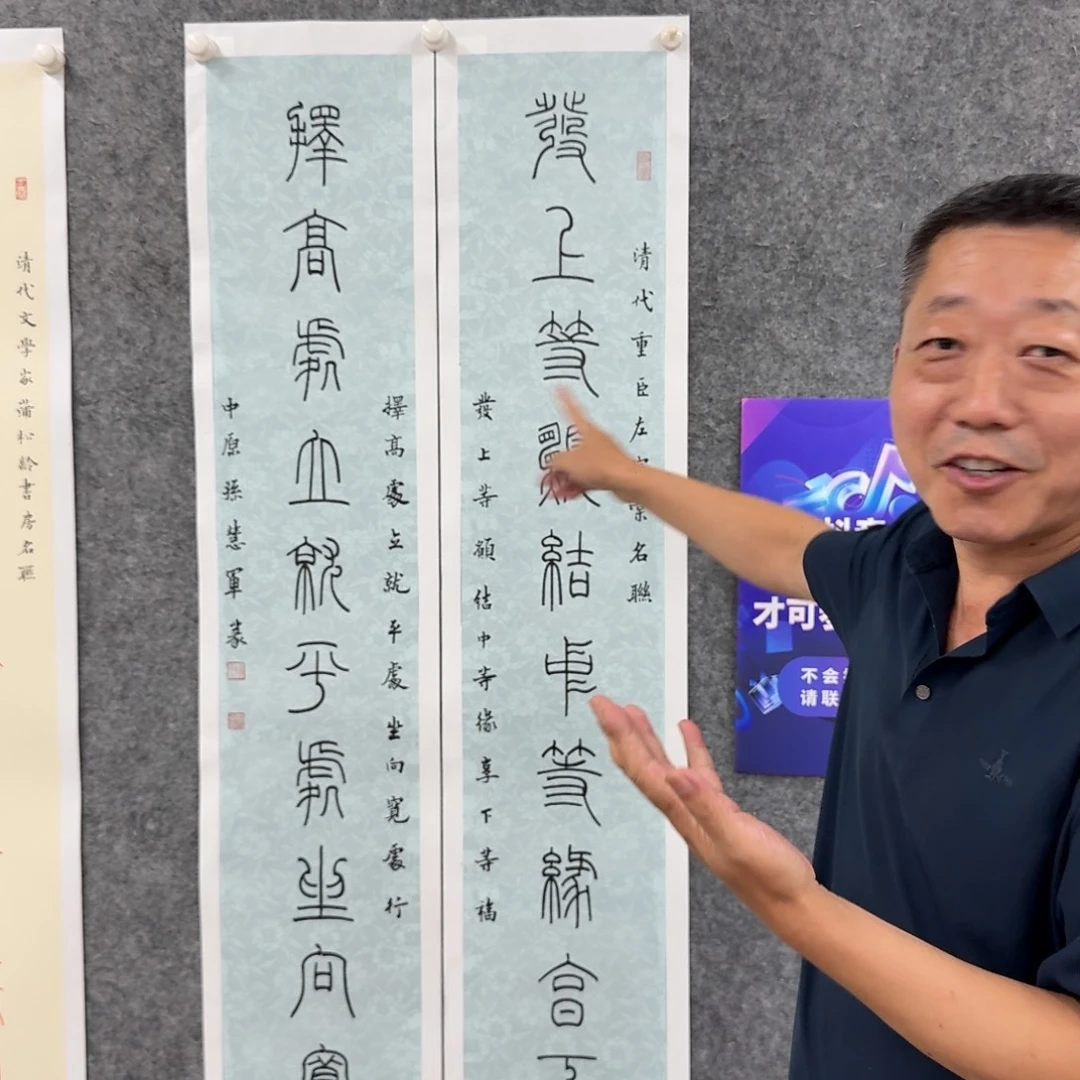 清代重臣左宗棠名聯
發上等願結中等緣享下
發上等願结中等缘享下等福
擇高處立就平處坐向寬處行
擇高處立就平處坐向寬
中原孫慧軍篆
清代文學家蒲松齡書房名聯
才可
不会
请联